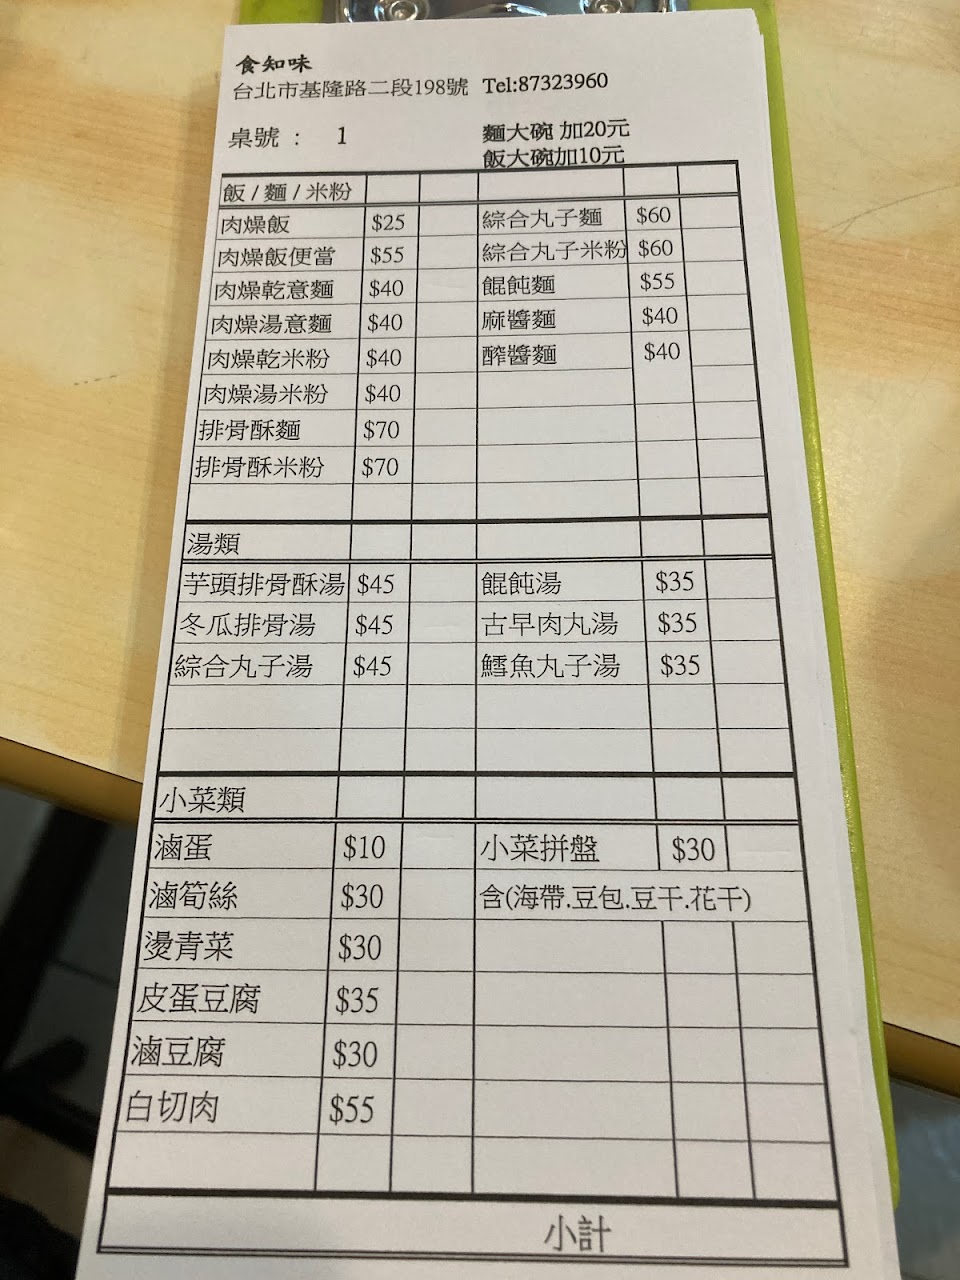 食知味
台北市基隆路二段198號 Tel:87323960
桌號 : 1 麵大碗 加20元
飯大碗加10元
飯 / 麵 / 米粉
肉燥飯 $25 綜合丸子麵 $60
肉燥飯便當 $55 綜合丸子米粉 $60
肉燥乾意麵 $40 餛飩麵 $55
肉燥湯意麵 $40 麻醬麵 $40
肉燥乾米粉 $40 醡醬麵 $40
肉燥湯米粉 $40
排骨酥麵 $70
排骨酥米粉 $70
湯類
芋頭排骨酥湯 $45 餛飩湯 $35
冬瓜排骨湯 $45 古早肉丸湯 $35
綜合丸子湯 $45 鱈魚丸子湯 $35
小菜類
滷蛋 $10 小菜拼盤 $30
滷筍絲 $30 含(海帶.豆包.豆干.花干)
燙青菜 $30
皮蛋豆腐 $35
滷豆腐 $30
白切肉 $55
小計